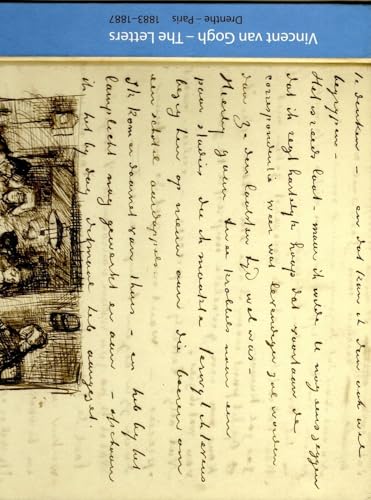 Vincent van Gogh – The Letters
Drenthe – Paris 1883–1887
te denken – en dat kan ik dan ook wel
begrijpen –
Het is reeds laat. maar ik wilde U nog eens zeggen
dat ik regt hartelijk hoop dat voortaan de
correspondentie weer wat levendiger zal worden
dan ze den laatsten tijd wel was –
Hierbij gaan twee krabbels naar een
paar studies die ik maakte terwijl ik tevens
bezig ben op nieuw aan die boeren om
een schotel aardappels.
Ik kom er daarnet van thuis – en heb bij het
lamplicht nog gewerkt er aan – ofschoon
ik het bij dag ditmaal heb aangezet.